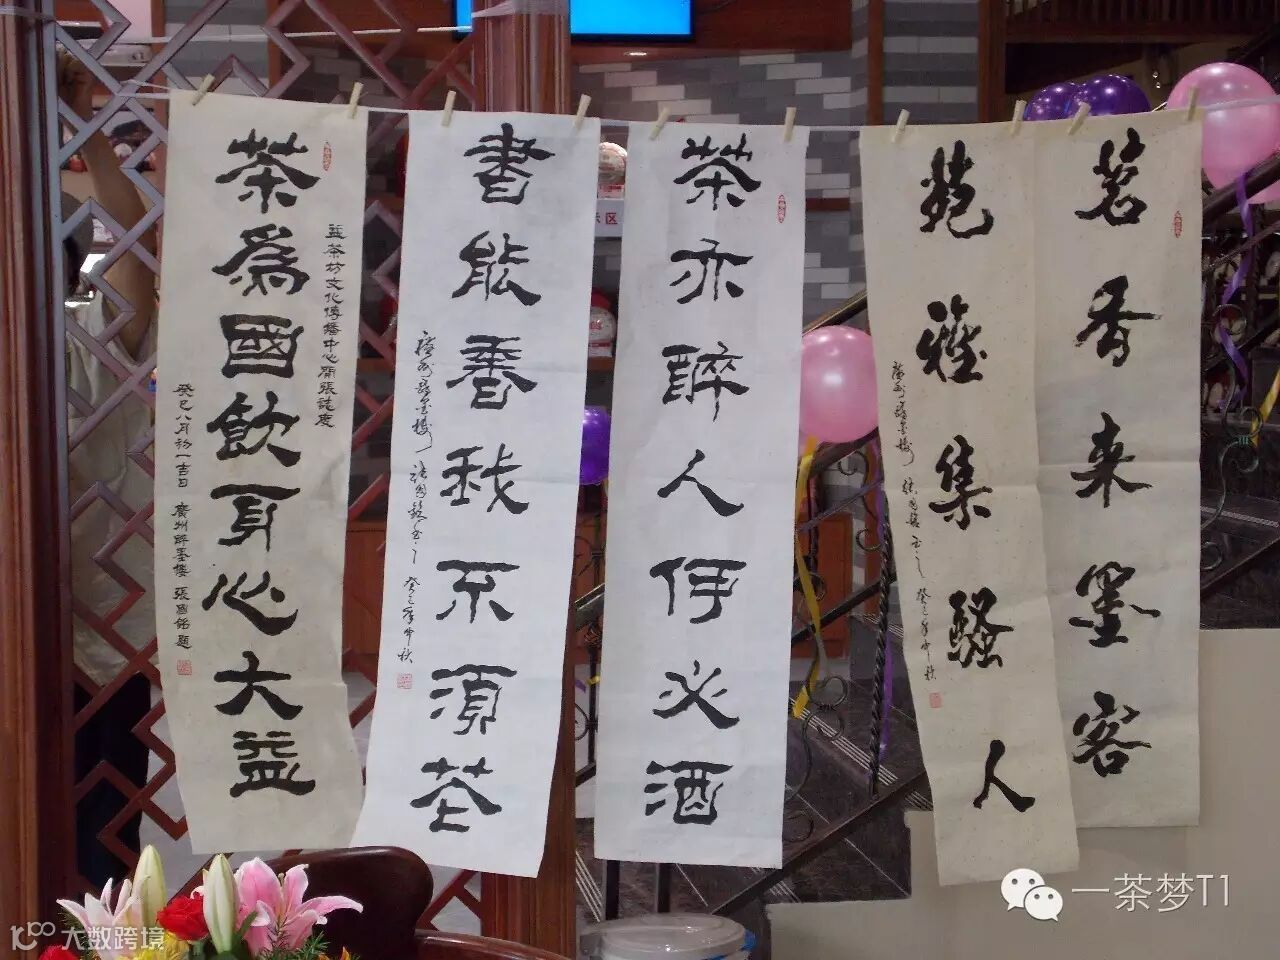 茗香来墨客
苑雅集騷人
癸巳年中秋
茶亦醉人何必酒
書能香我不須花
癸巳年中秋
茶為國飲身心大益
益茶坊文化傳播中心開張誌慶
癸巳八月初一吉日 廣州醉墨樓 張國銘題
一茶梦T1
大数跨境